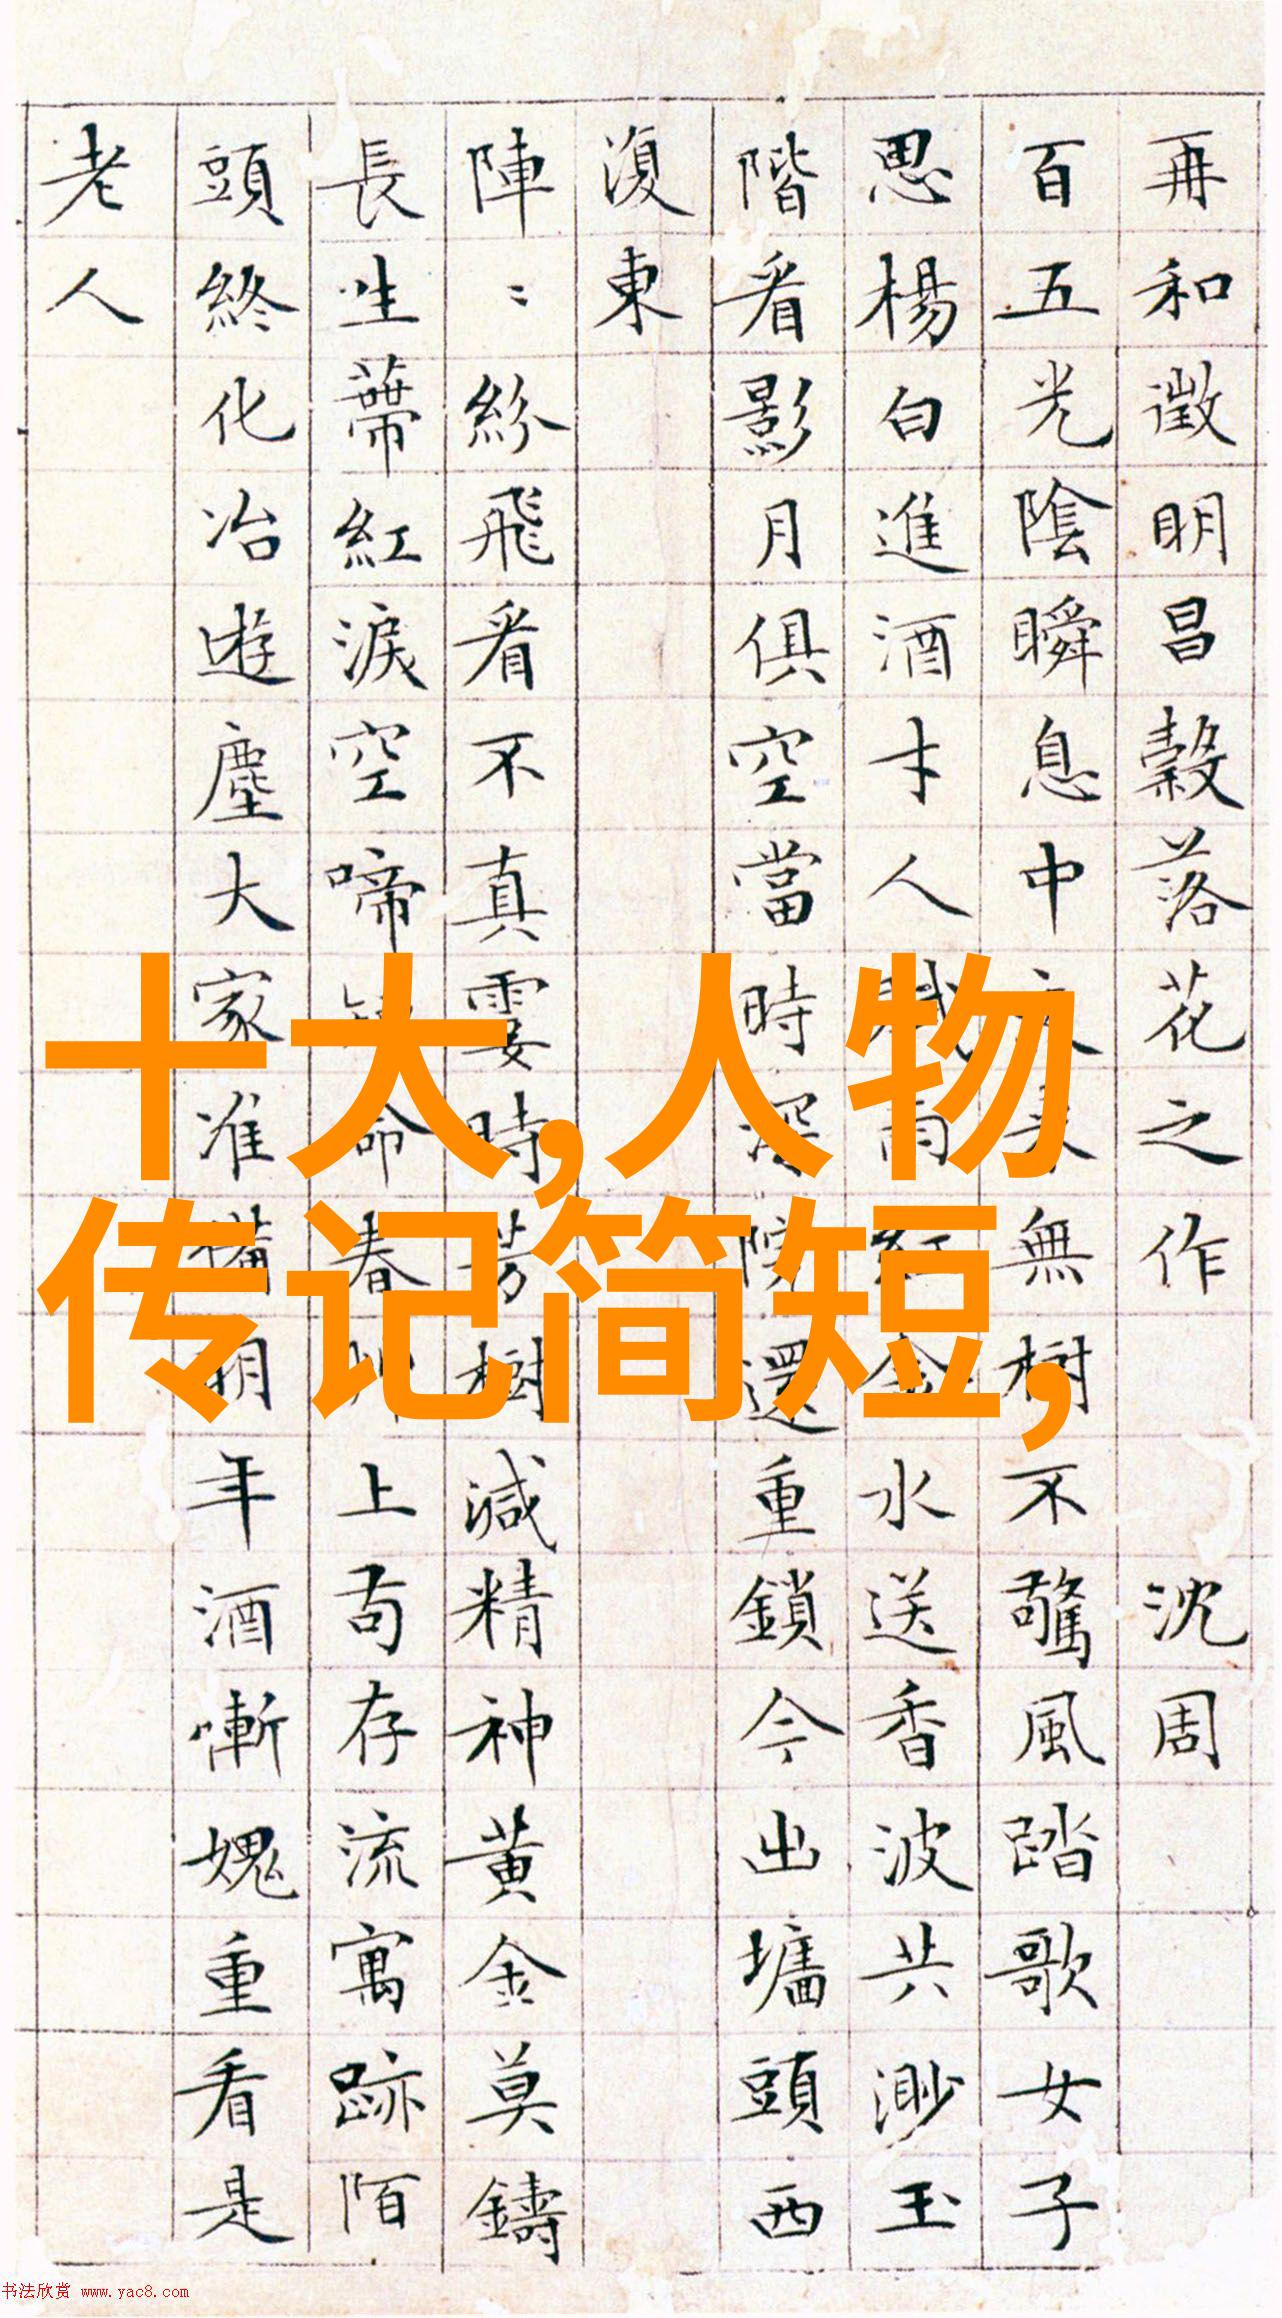 再和徵明昌穀落花之作 沈周
百五光陰瞬息中 無樹不驚風踏歌女子
思楊白進酒才人賦雨紅金水送香波共渺玉
階看影月俱空當時深院還重鎖今出墻頭西
復東
陣〻紛飛看不真霎時芳樹減精神黃金莫鑄
長生蒂紅淚空啼 命春 上苟存流寓跡陌
頭終化冶遊塵大家准備明年酒慚媿重看是
老人
十大,人物
传记简短,
书法欣赏 www.yac8.com